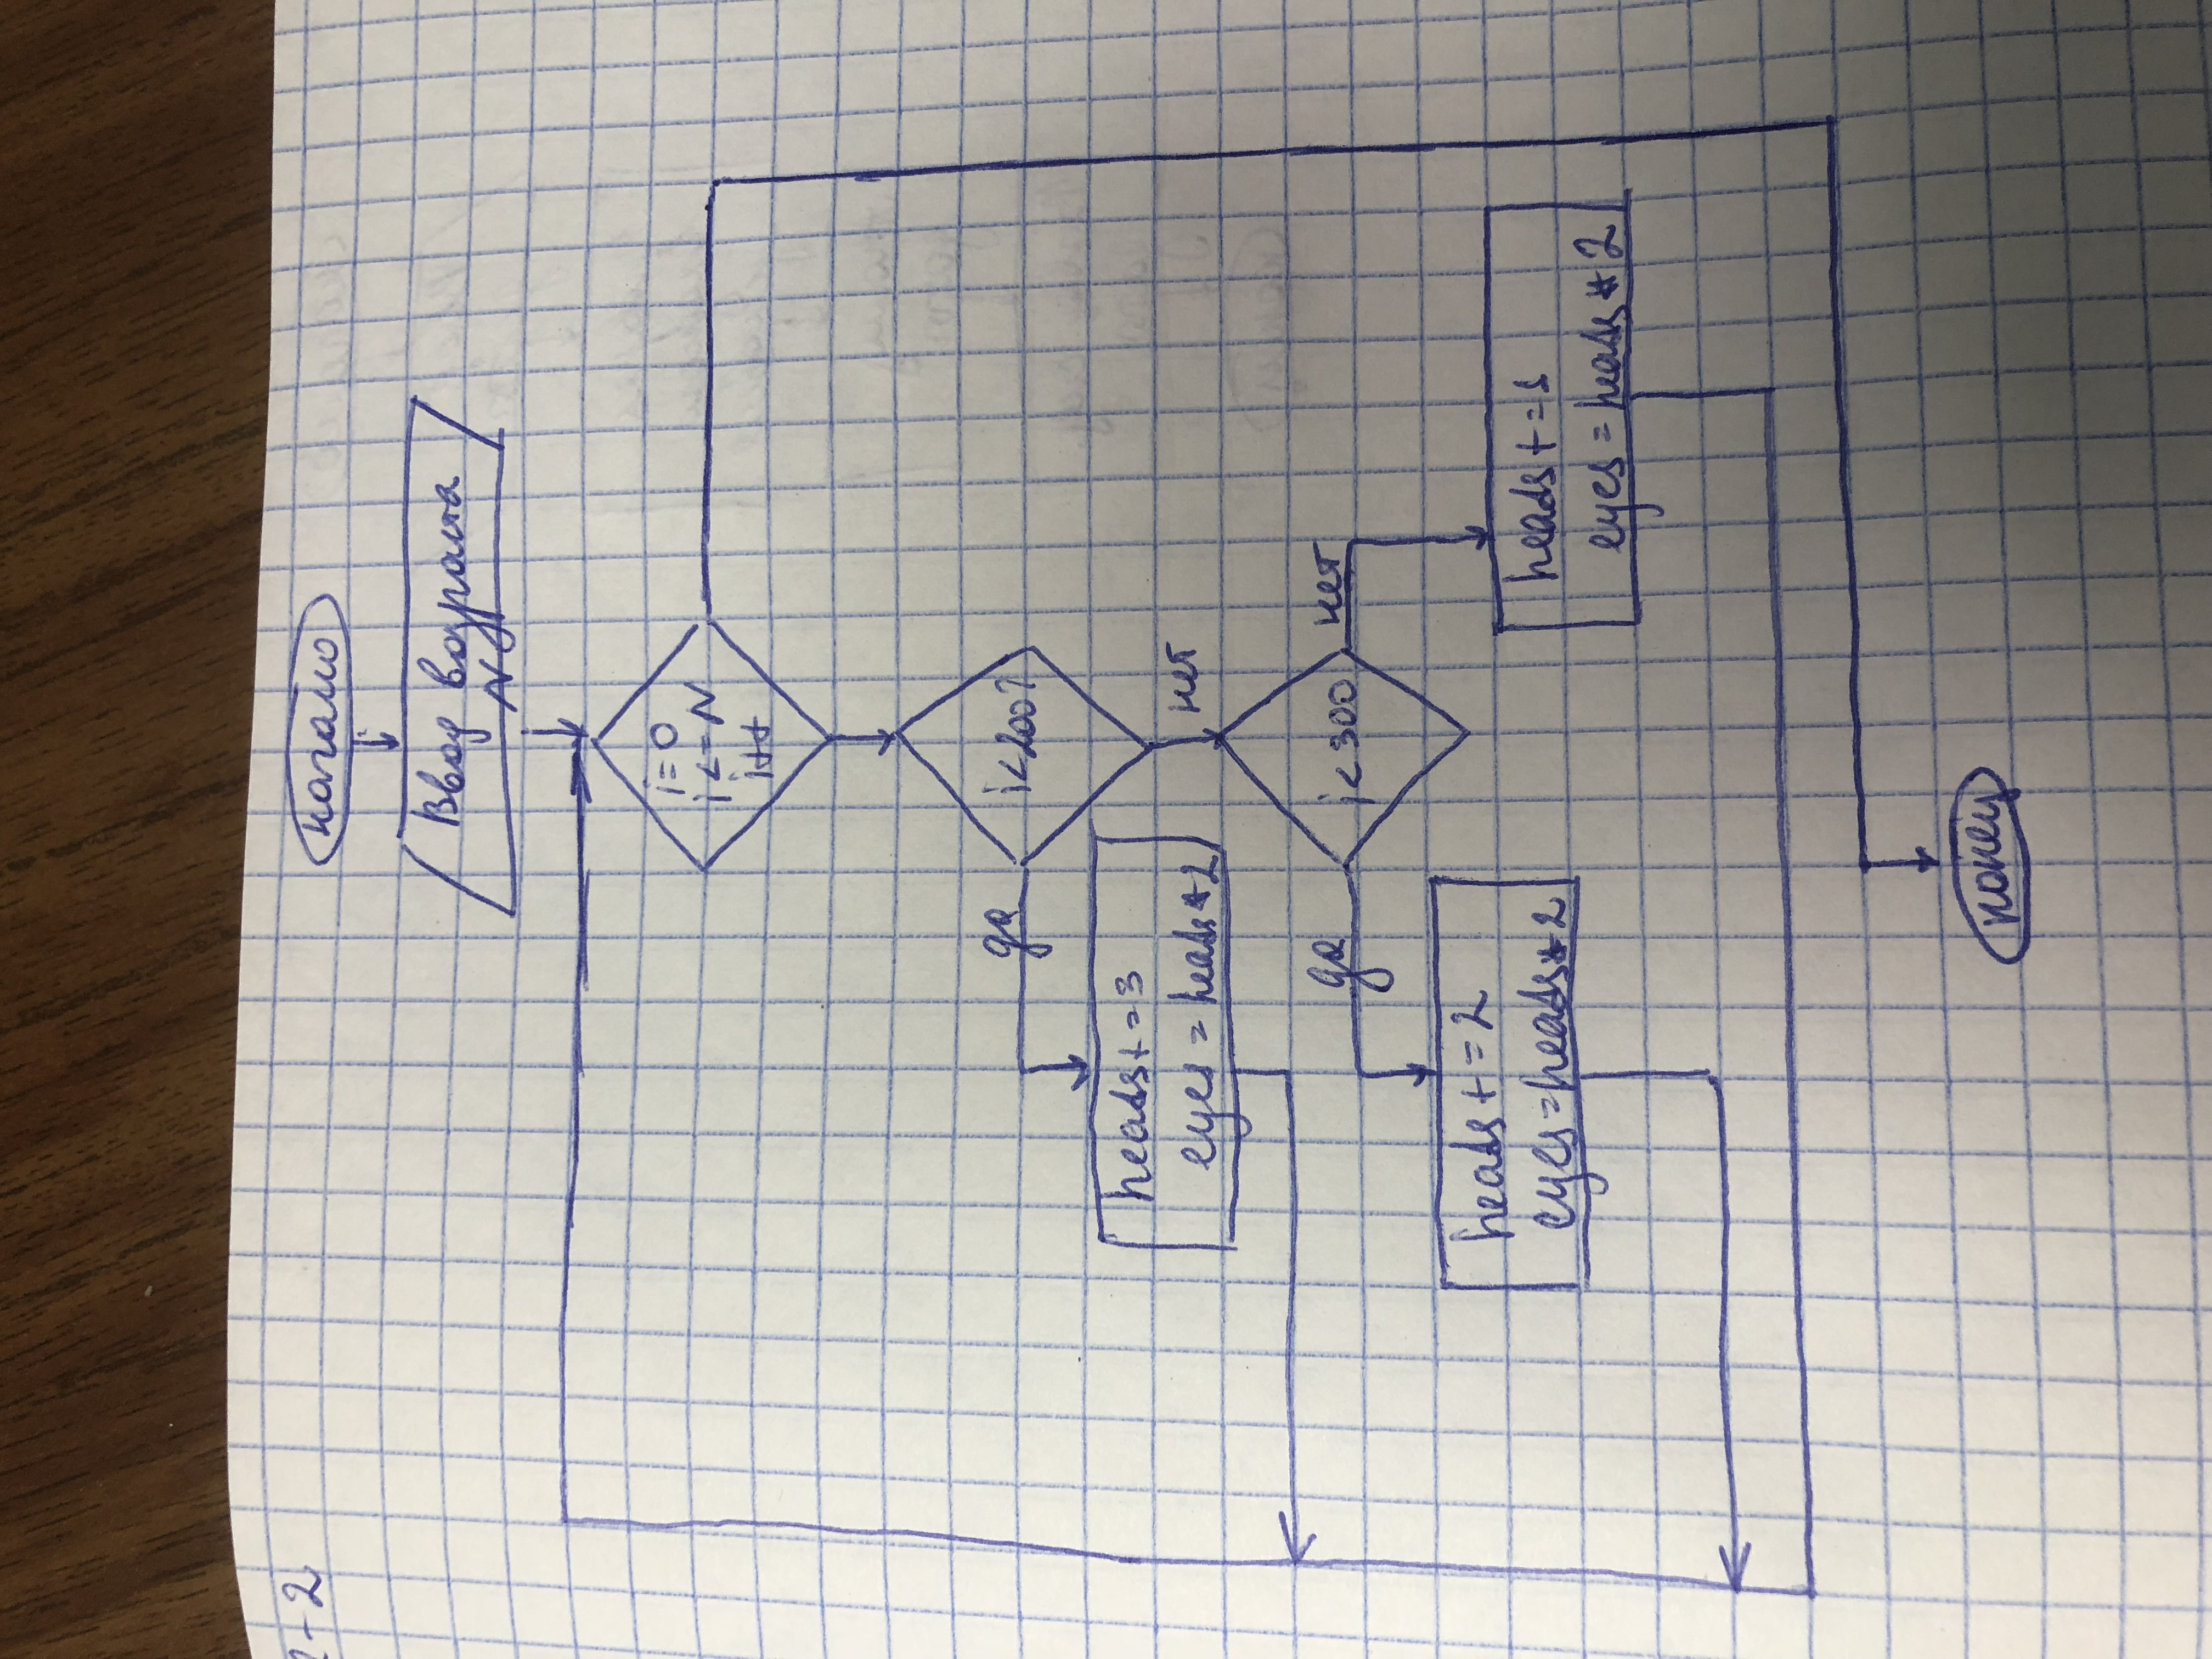 -2
начало
Ввод возраста
N
i=0
i<=N
i++
i<200?
да
heads+=3
eyes=heads*2
нет
i<300
да
нет
heads+=2
eyes=heads*2
heads+=1
eyes=heads*2
конец